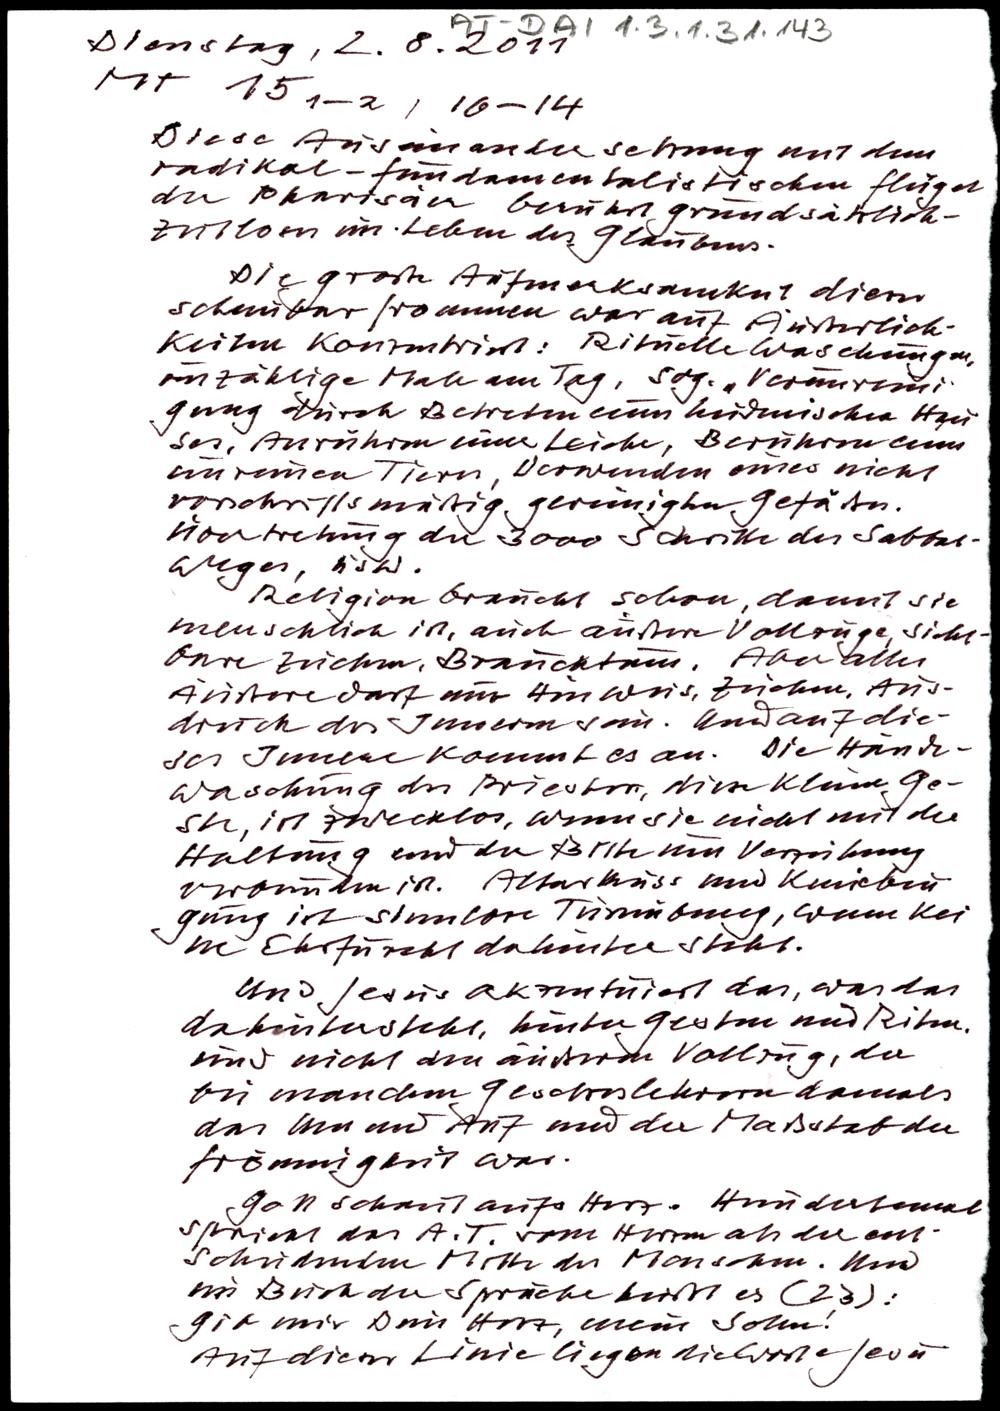 AT-DAI 1.3.1.31.143
Dienstag, 2. 8. 2011
Mt 15 1-2, 10-14
Diese Auseinandersetzung mit dem
radikal-fundamentalistischen Flügel
der Pharisäer berührt grundsätzlich-
zeitloses im Leben des Glaubens.
Die große Aufmerksamkeit dieser
scheinbar frommen war auf Äußerlich-
keiten konzentriert: Rituelle Waschungen,
unzählige Male am Tag, sog. „Verunreini-
gung durch Betreten eines heidnischen Hau
ses, Anrühren einer Leiche, Berühren eines
unreinen Tieres, Verwenden eines nicht
vorschriftsmäßig gereinigten Gefäßes.
Übertretung der 3000 Schritte des Sabbat-
weges, usw.
Religion braucht schon, damit sie
menschlich ist, auch äußere Vollzüge, sicht-
bare Zeichen, Brauchtum. Aber alles
Äußere darf nur Hinweis, Zeichen, Aus-
druck des Inneren sein. Und auf die-
ses Innere kommt es an. Die Hände-
waschung des Priesters, diese kleine Ge-
ste, ist zwecklos, wenn sie nicht mit der
Haltung und der Bitte um Verzeihung
verbunden ist. Altarkuss und Kniebeu
gung ist sinnlose Turnübung, wenn kei
ne Ehrfurcht dahinter steht.
Und Jesus akzentuiert das, was das
dahintersteht, hinter Gesten und Riten.
und nicht den äußeren Vollzug, der
bei manchen Gesetzeslehrern damals
das Um und Auf und der Maßstab der
Frömmigkeit war.
Gott schaut aufs Herz. Hundertemal
spricht das A.T. vom Herzen als der ent-
scheidenden Mitte des Menschen. Und
im Buch der Sprüche heißt es (23):
Gib mir Dein Herz, mein Sohn!
Auf dieser Linie liegen die Worte Jesu